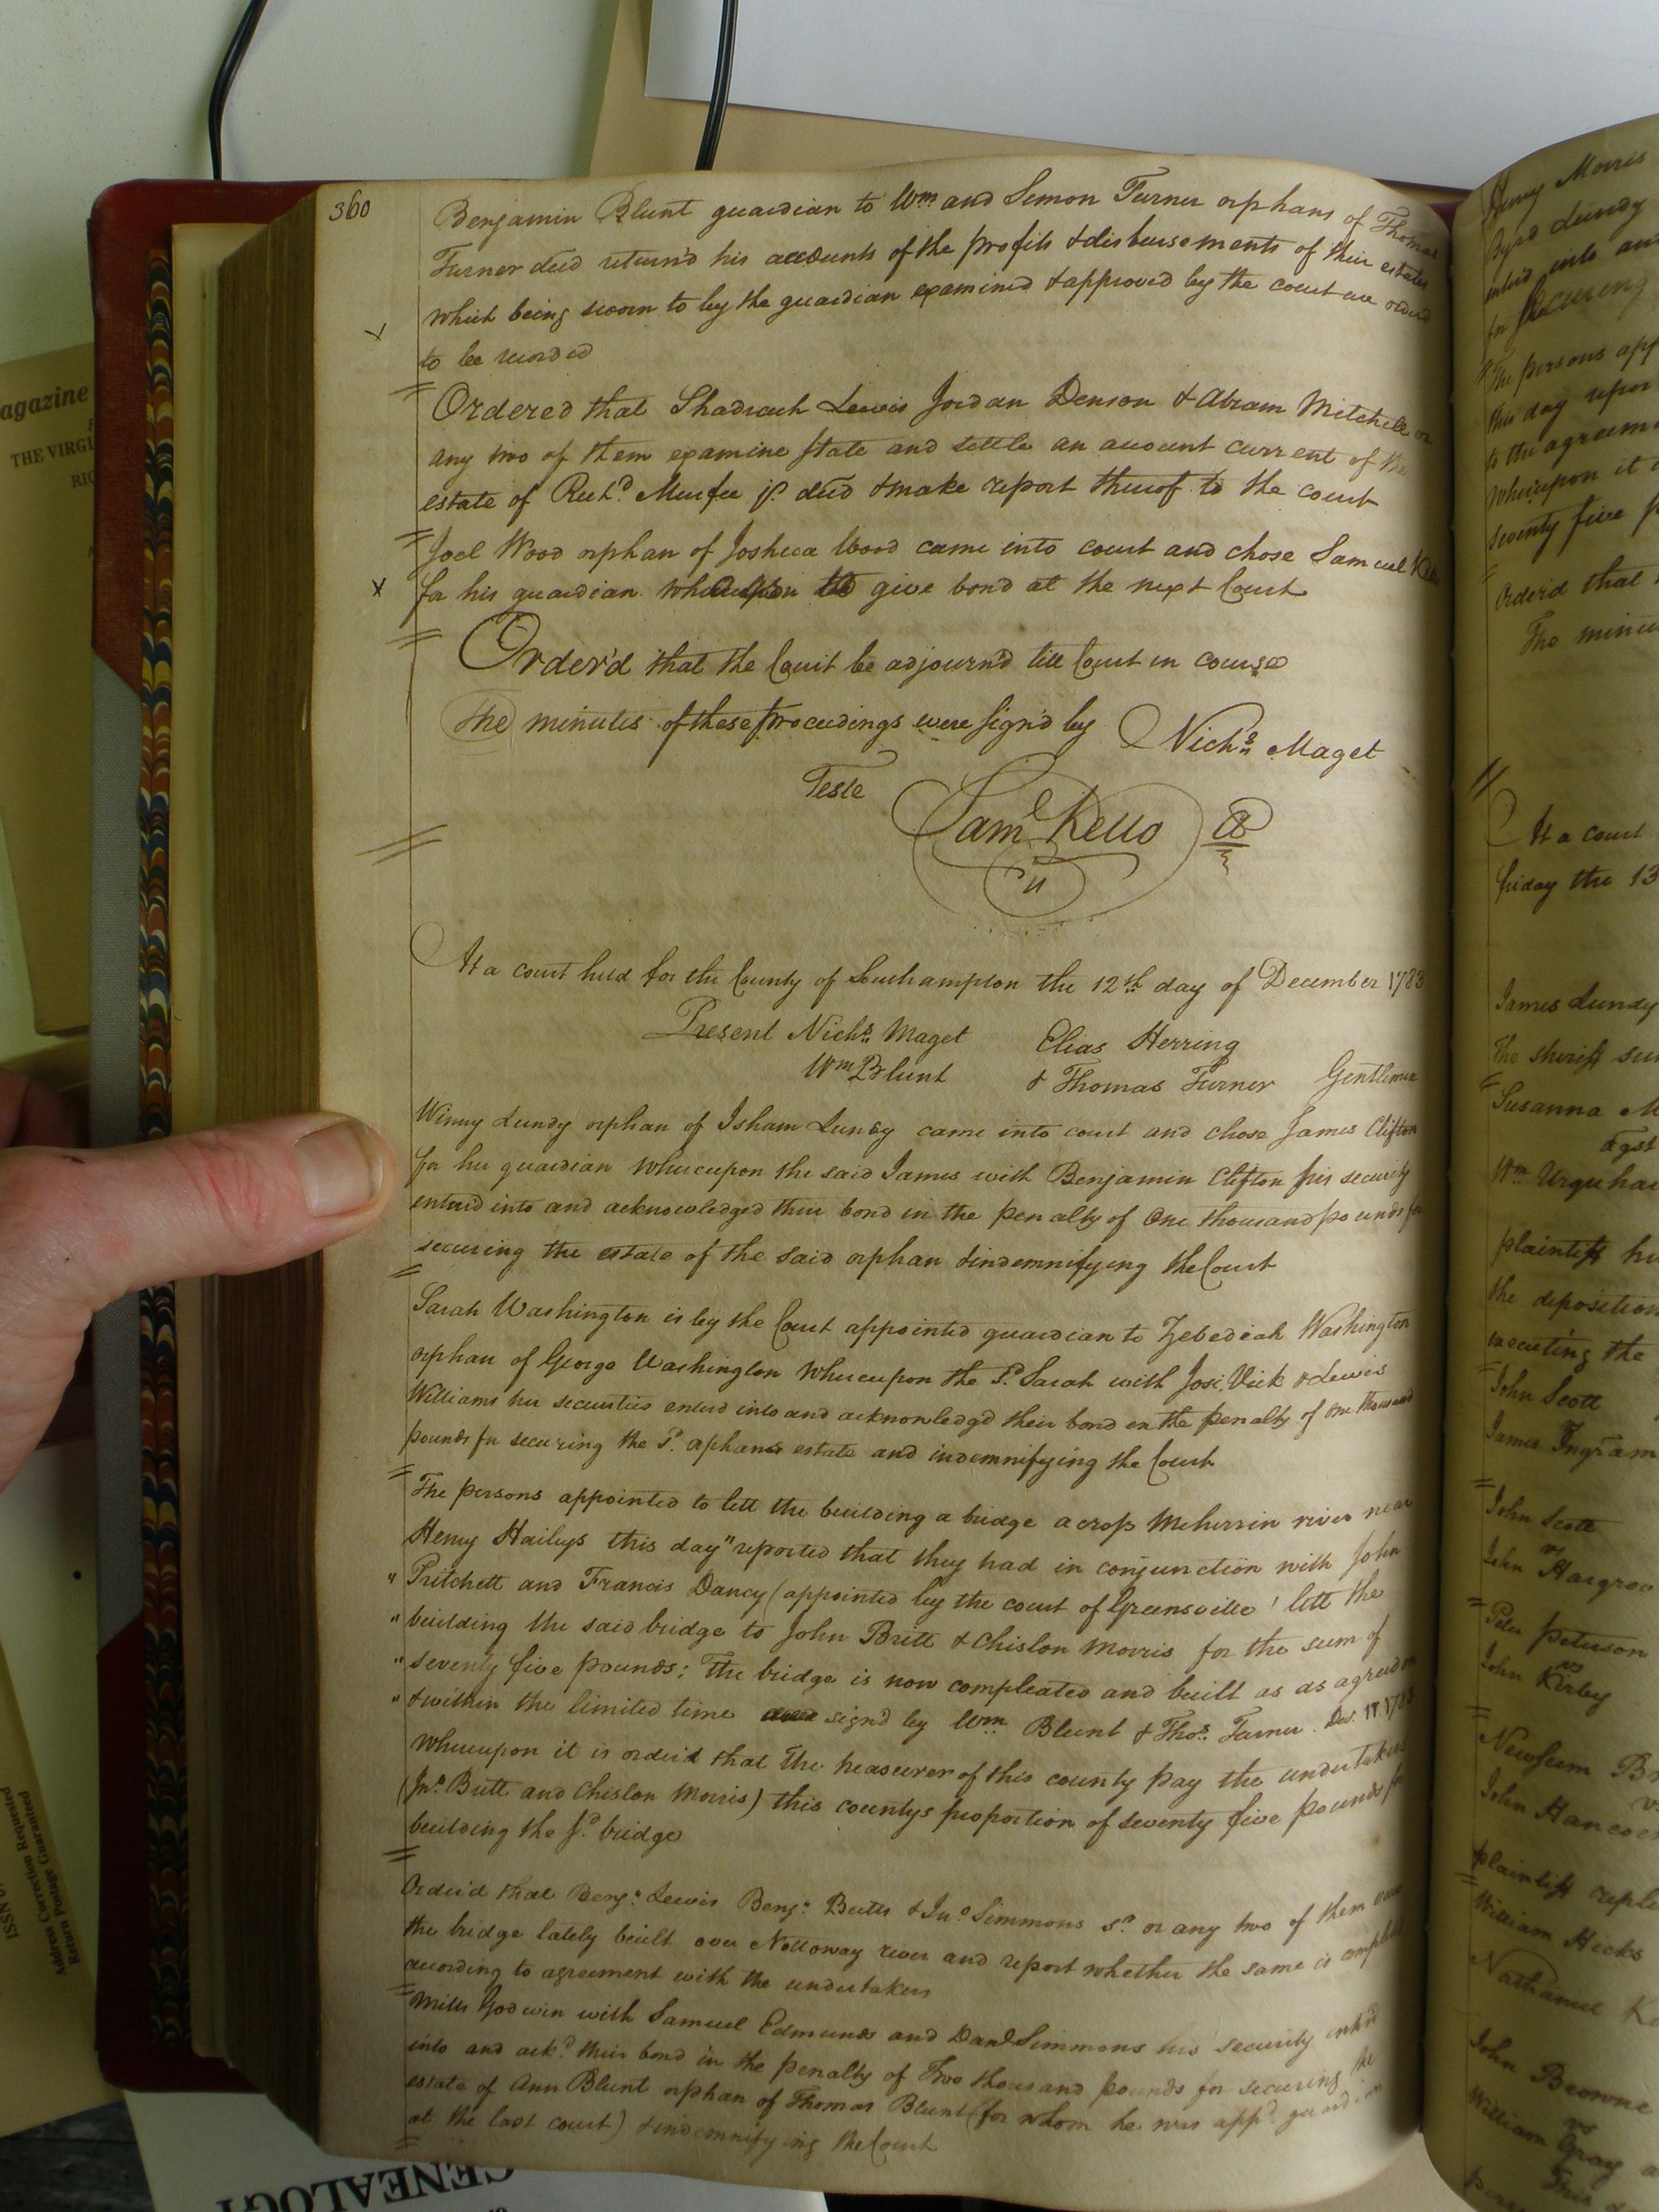 360
Benjamin Blunt guardian to Wm and Simon Turner orphans of Thomas
Turner decd return'd his accounts of the profits & disbursements of their estates
which being sworn to by the guardian examined & approved by the court are orderd
to be recorded
Ordered that Shadrach Lewis Jordan Denson & Abram Mitchell or
any two of them examine state and settle an account current of the
estate of Richd. Murfee jr. decd & make report thereof to the court
Joel Wood orphan of Joshua Wood came into court and chose Samuel
for his guardian whereupon to give bond at the next Court
Order'd that the Court be adjourn'd till Court in course
The minutes of these proceedings were sign'd by Nichs. Maget
Teste
Saml Kello
At a court held for the County of Southampton the 12th day of December 1783
Present Nichs. Maget Elias Herring
Wm Blunt & Thomas Turner Gentlemen
Winny Lundy orphan of Isham Lundy came into court and chose James Clifton
for her guardian whereupon the said James with Benjamin Clifton his security
enterd into and acknowledged their bond in the penalty of One thousand pounds for
securing the estate of the said orphan & indemnifying the Court
Sarah Washington is by the Court appointed guardian to Zebediah Washington
orphan of George Washington whereupon the Sd. Sarah with Josi. Vick & Lewis
Williams her securities enterd into and acknowledg'd their bond in the penalty of one thousand
pounds for securing the Sd. orphans estate and indemnifying the Court
The persons appointed to lett the building a bridge across Meherrin river near
Henry Haileys this day "reported that they had in conjunction with John
" Pritchett and Francis Dancy (appointed by the court of Greensville) lett the
" building the said bridge to John Britt & Chislon Morris for the sum of
" seventy five pounds; The bridge is now compleated and built as as agreed on
" & within the limited time signd by Wm Blunt & Thos. Turner Dec. 11. 1783
Whereupon it is orderd that the treasurer of this county pay the undertakers
(Jno. Britt and Chislon Morris) this countys proportion of seventy five pounds for
building the sd. bridge
Orderd that Benja. Lewis Benja. Butts & Jno. Simmons sr. or any two of them
the bridge lately built over Nottoway river and report whether the same is
according to agreement with the undertakers
Mills Godwin with Samuel Edmunds and Danl Simmons his security enterd
into and ackd. their bond in the penalty of Two thousand pounds for securing the
estate of Ann Blunt orphan of Thomas Blunt (for whom he was appd. guardian
at the last court) & indemnifying the Court
Henry Morris
Byrd Lundy
enterd into
for securing
The persons app
this day repor
to the agreeme
Whereupon it
seventy five p
Orderd that
The minu
At a court
friday the 13
James Lundy
The sheriff su
Susanna M
agst
Wm Urquha
plaintiff
the deposition
executing the
John Scott
James Ingram
John Scott
vs
John Hargrov
Peter Peterson
vs
John Kirby
Newsum Br
John Hancock
plaintiff repl
William Hicks
Nathaniel K
John Browne
vs
William Gray
agazine
THE VIRGI
RIC
ISSN
Address Correction Requested
Return Postage Guaranteed
GENEALOGY